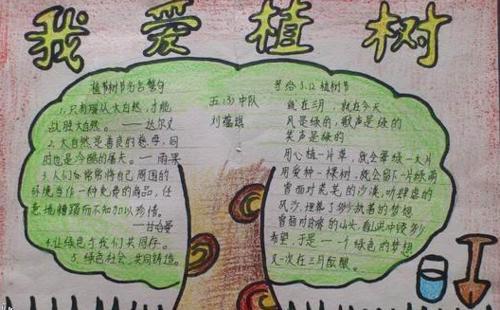 我爱植树
植树节名言警句
1.只有顺从大自然,才能
战胜大自然。——达尔文
2.大自然是善良的慈母,同
时也是冷酷的屠夫。——雨果
3.人们常常将自己周围的
环境当作一种免费的商品,任
意地糟蹋而不知加以珍惜。
——甘哈曼
4.让绿色与我们共同存。
5.绿色社会,共同铸造。
五(3)中队
刘蕴琪
写给3.12植树节
就在三月 就在今天
风是绿的,歌声是绿的
笑声是绿的
用心植一片草,就会翠绿一大片
用爱种一棵树,就会留下一片绿荫
曾面对荒芜的沙漠,听肆虐的
风沙,埋葬了多少执着的梦想
曾面对的山头,看洪冲毁多少
希望,于是一个绿色的梦想
又一次在三月酝酿。